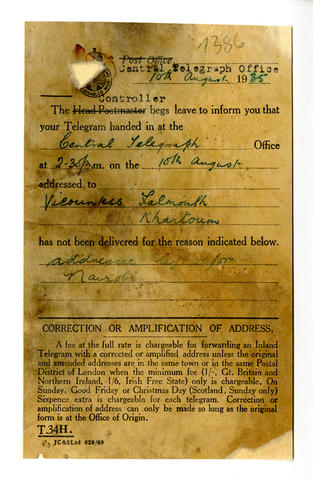 1386
Post Office
Central Telegraph Office
10th August 1935
Controller
The Head Postmaster begs leave to inform you that
your Telegram handed in at the
Central Telegraph Office
at 2-30p.m. on the 10th August
addressed to
Vicountess Falmouth
Khartoum
has not been delivered for the reason indicated below.
addressee left for
Nairobi
CORRECTION OR AMPLIFICATION OF ADDRESS.
A fee at the full rate is chargeable for forwarding an Inland
Telegram with a corrected or amplified address unless the original
and amended addresses are in the same town or in the same Postal
District of London when the minimum fee (1/-, Gt. Britain and
Northern Ireland, 1/6, Irish Free State) only is chargeable. On
Sunday, Good Friday or Christmas Day (Scotland, Sunday only)
Sixpence extra is chargeable for each telegram. Correction or
amplification of address can only be made so long as the original
form is at the Office of Origin.
T.34H.
JC&SLtd 628/69